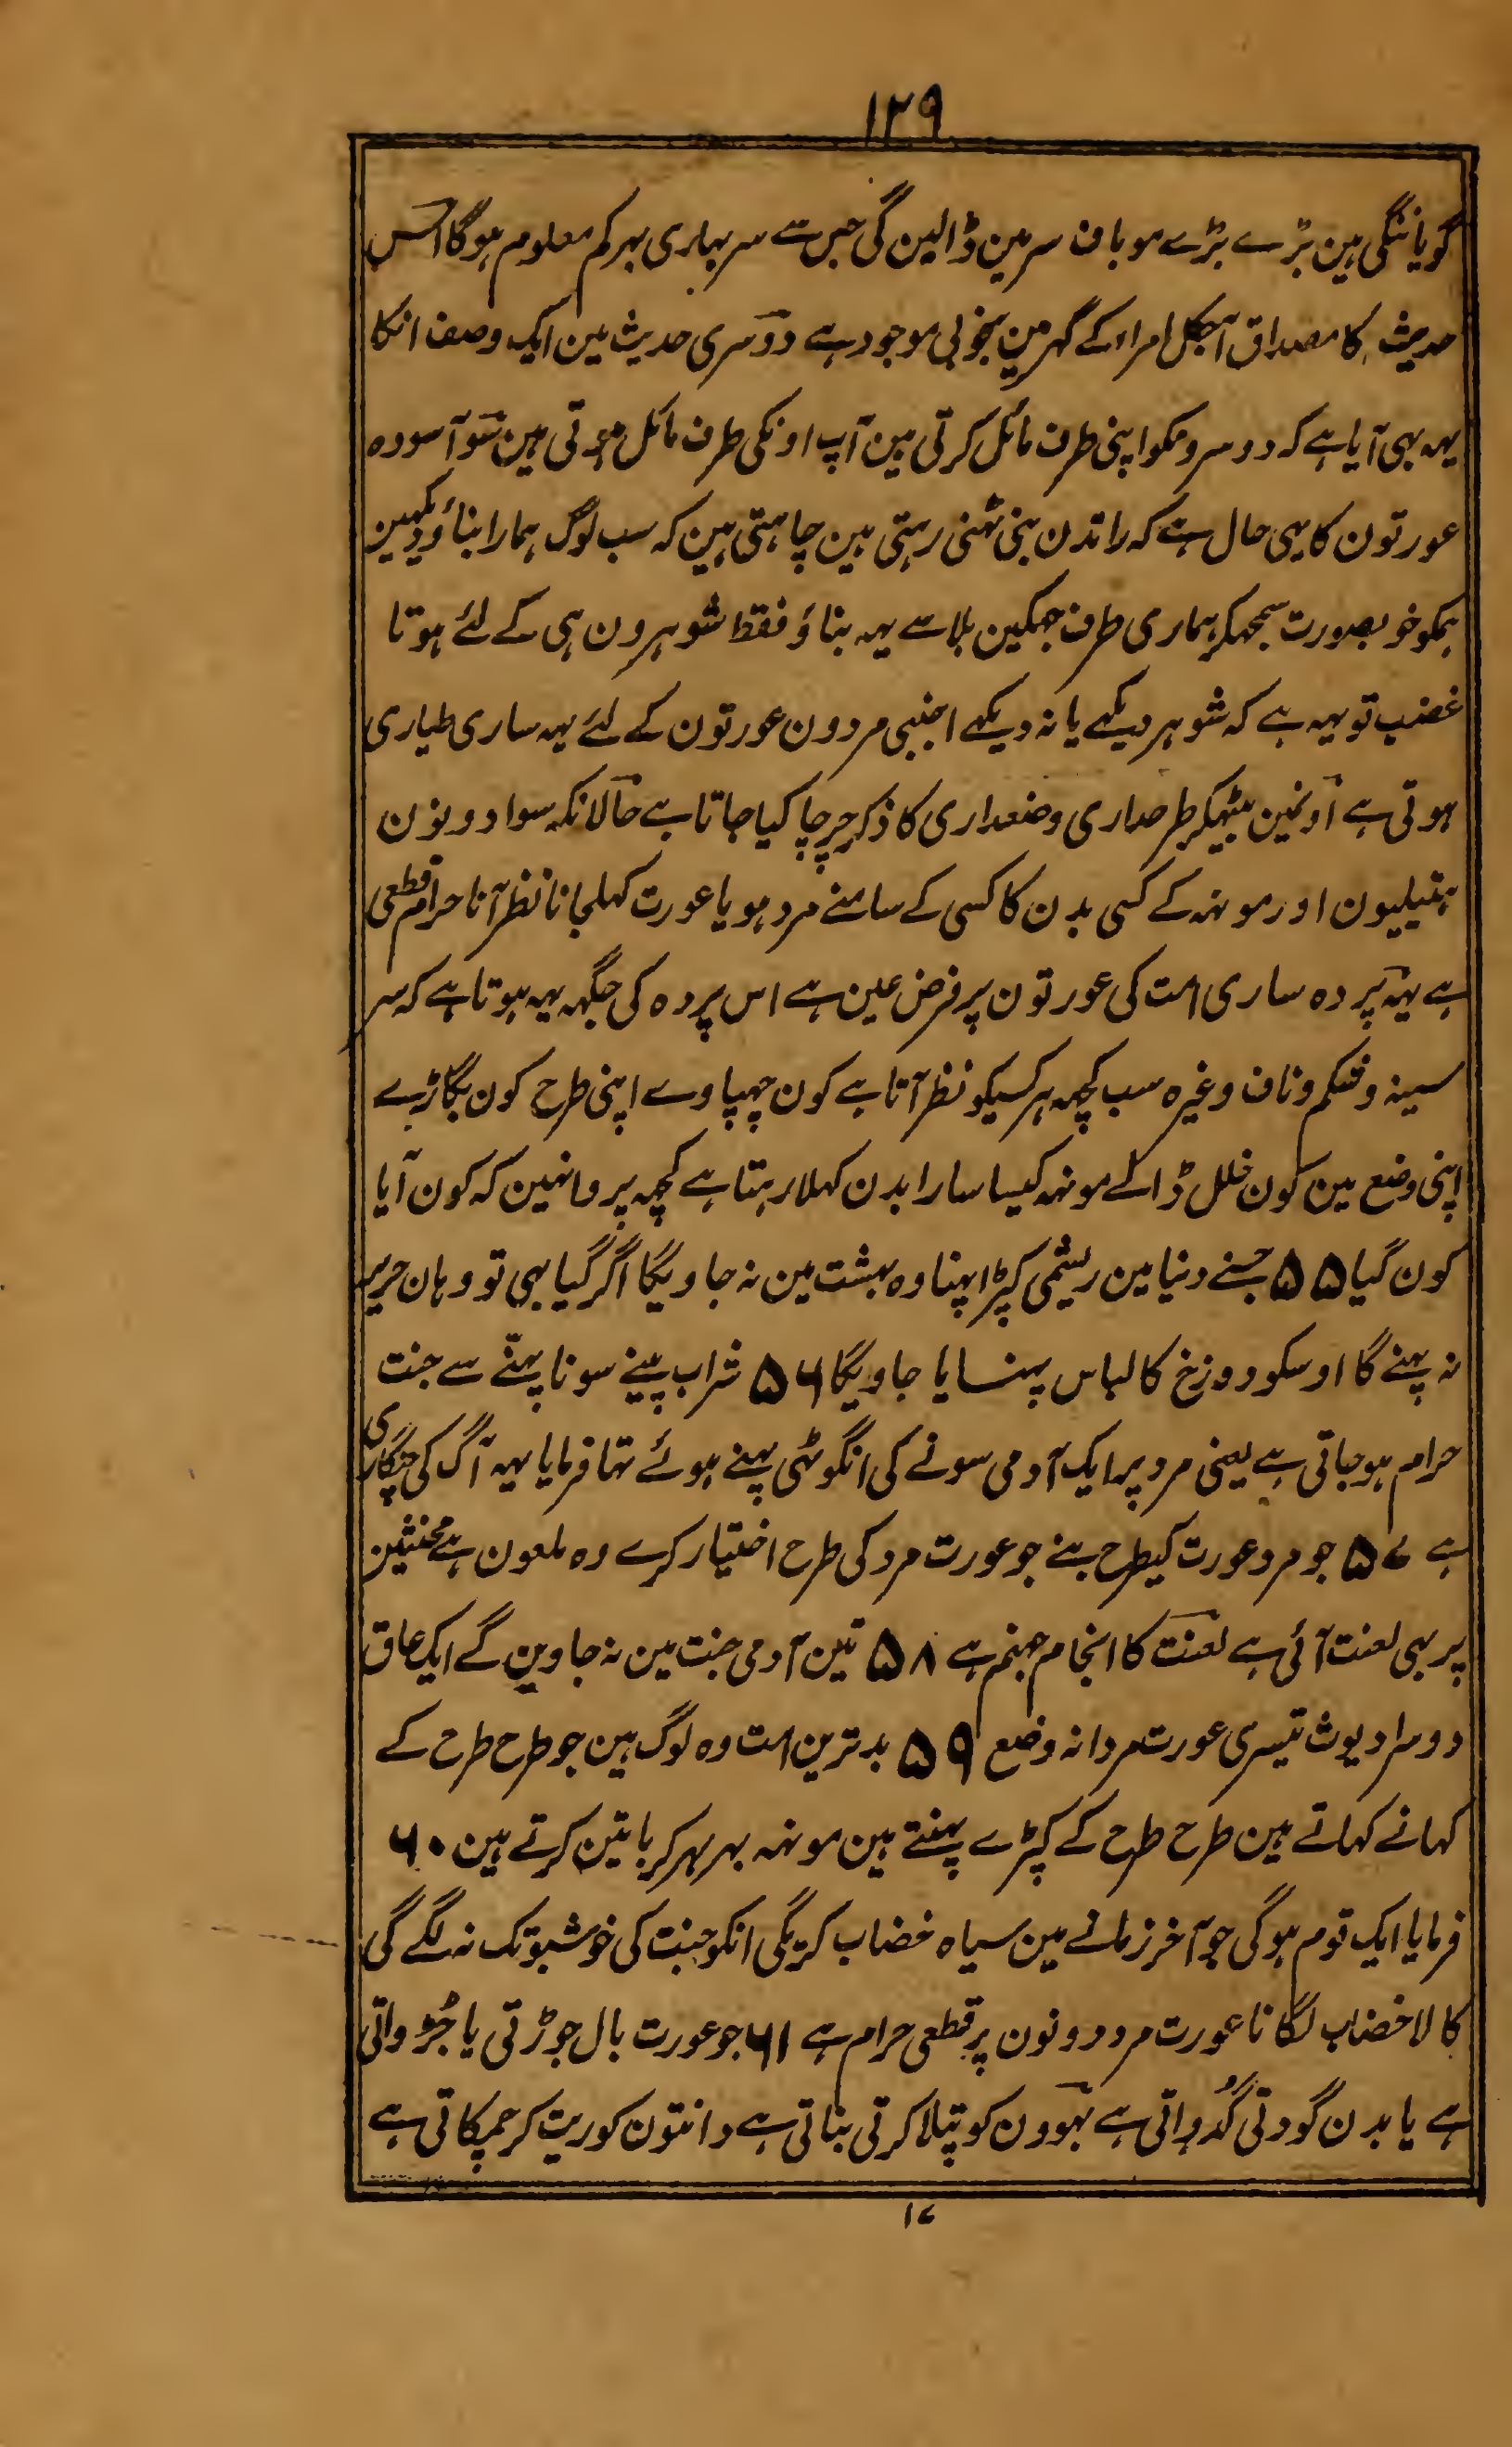 ۱۲۹
گویا ننگی ہین بڑے بڑے موباف سرمین ڈالین گی جس سے سر بہاری بہر کم معلوم ہوگا اس
حدیث کا مصداق آجکل امراء کے گہر مین بخوبی موجود ہے دوسری حدیث مین ایک وصف انکا
یہہ بہی آیا ہے کہ دوسرونکو اپنی طرف مائل کرتی ہین آپ اونکی طرف مائل ہوتی ہین سو آسودہ
عورتون کا یہی حال ہے کہ راتدن بنی ٹہنی رہتی ہین چاہتی ہین کہ سب لوگ ہمارا بناؤ دیکہین
ہمکو خوبصورت سمجہکر ہماری طرف جہکین بلا سے یہہ بناؤ فقط شوہرون ہی کے لئے ہوتا
غضب تو یہہ ہے کہ شوہر دیکہے یا نہ دیکہے اجنبی مردون عورتون کے لئے یہہ ساری طیاری
ہوتی ہے اونمین بیٹہکر طرحداری وضعداری کا ذکر چرچا کیا جاتا ہے حالانکہ سوا دونون
ہتیلیون اور مونہہ کے کسی بدن کا کسی کے سامنے مرد ہو یا عورت کہلجانا نظر آنا حرام قطعی
ہے یہہ پردہ ساری امت کی عورتون پر فرض عین ہے اس پردہ کی جگہہ یہہ ہوتا ہے کہ سر
سینہ و شکم و ناف وغیرہ سب کچہہ ہر کسیکو نظر آتا ہے کون چہپاوے اپنی طرح کون بگاڑے
اپنی وضع مین کون خلل ڈالے مونہہ کیسا سارا بدن کہلا رہتا ہے کچہہ پروا نہین کہ کون آیا
کون گیا ۵۵ جسنے دنیا مین ریشمی کپڑا پہنا وہ بہشت مین نہ جاویگا اگر گیا بہی تو وہان حریر
نہ پہنے گا اوسکو دوزخ کا لباس پہنسایا جاویگا ۵۶ شراب پینے سونا پہننے سے جنت
حرام ہو جاتی ہے یعنی مرد پر ایک آدمی سونے کی انگوٹہی پہنے ہوئے تہا فرمایا یہہ آگ کی چنگاری
ہے ۵۷ جو مرد عورت کیطرح بنے جو عورت مرد کی طرح اختیار کرے وہ ملعون ہے مخنثین
پر بہی لعنت آئی ہے لعنت کا انجام جہنم ہے ۵۸ تین آدمی جنت مین نہ جاوین گے ایک عاق
دوسرا دیوث تیسری عورت مردانہ وضع ۵۹ بدترین امت وہ لوگ ہین جو طرح طرح کے
کہانے کہاتے ہین طرح طرح کے کپڑے پہنتے ہین مونہہ بہر بہر کر باتین کرتے ہین ۶۰
فرمایا ایک قوم ہوگی جو آخر زمانے مین سیاہ خضاب کریگی انکو جنت کی خوشبو تک نہ لگے گی
کالا خضاب لگانا عورت مرد دونون پر قطعی حرام ہے ۶۱ جو عورت بال جوڑتی یا جُڑواتی
ہے یا بدن گودتی گُدواتی ہے بہوون کو پتلا کرتی بناتی ہے دانتون کو ریت کر چمپکاتی ہے
۱۷